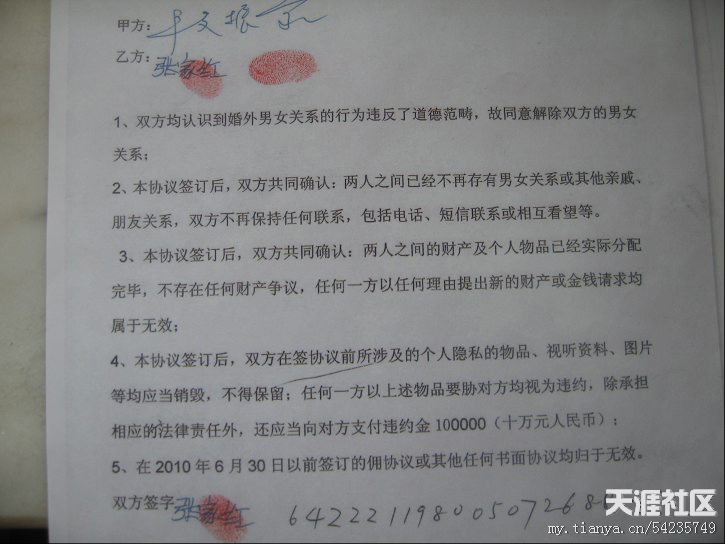 甲方：
乙方：张家红
1、双方均认识到婚外男女关系的行为违反了道德范畴，故同意解除双方的男女
关系；
2、本协议签订后，双方共同确认：两人之间已经不再存有男女关系或其他亲戚、
朋友关系，双方不再保持任何联系，包括电话、短信联系或相互看望等。
3、本协议签订后，双方共同确认：两人之间的财产及个人物品已经实际分配
完毕，不存在任何财产争议，任何一方以任何理由提出新的财产或金钱请求均
属于无效；
4、本协议签订后，双方在签协议前所涉及的个人隐私的物品、视听资料、图片
等均应当销毁，不得保留；任何一方以上述物品要胁对方均视为违约，除承担
相应的法律责任外，还应当向对方支付违约金 100000（十万元人民币）；
5、在 2010 年 6 月 30 日以前签订的佣协议或其他任何书面协议均归于无效。
双方签字 张家红 64222119800507268
天涯社区
my.tianya.cn/54235749